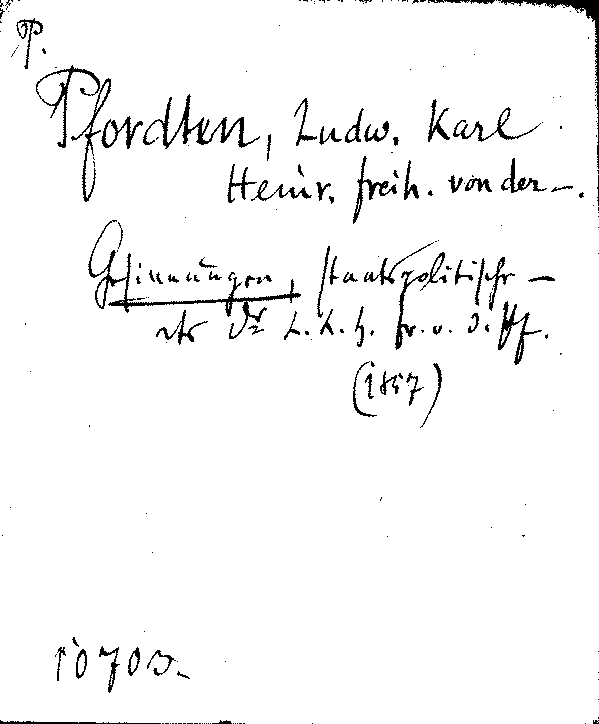 P.
Pfordten, Ludw. Karl
Heinr. freih. von der –.
Gesinnungen, staatspolitische –
des Dr. L. K. H. Fr. v. d. Pf.
(1857)
10703.